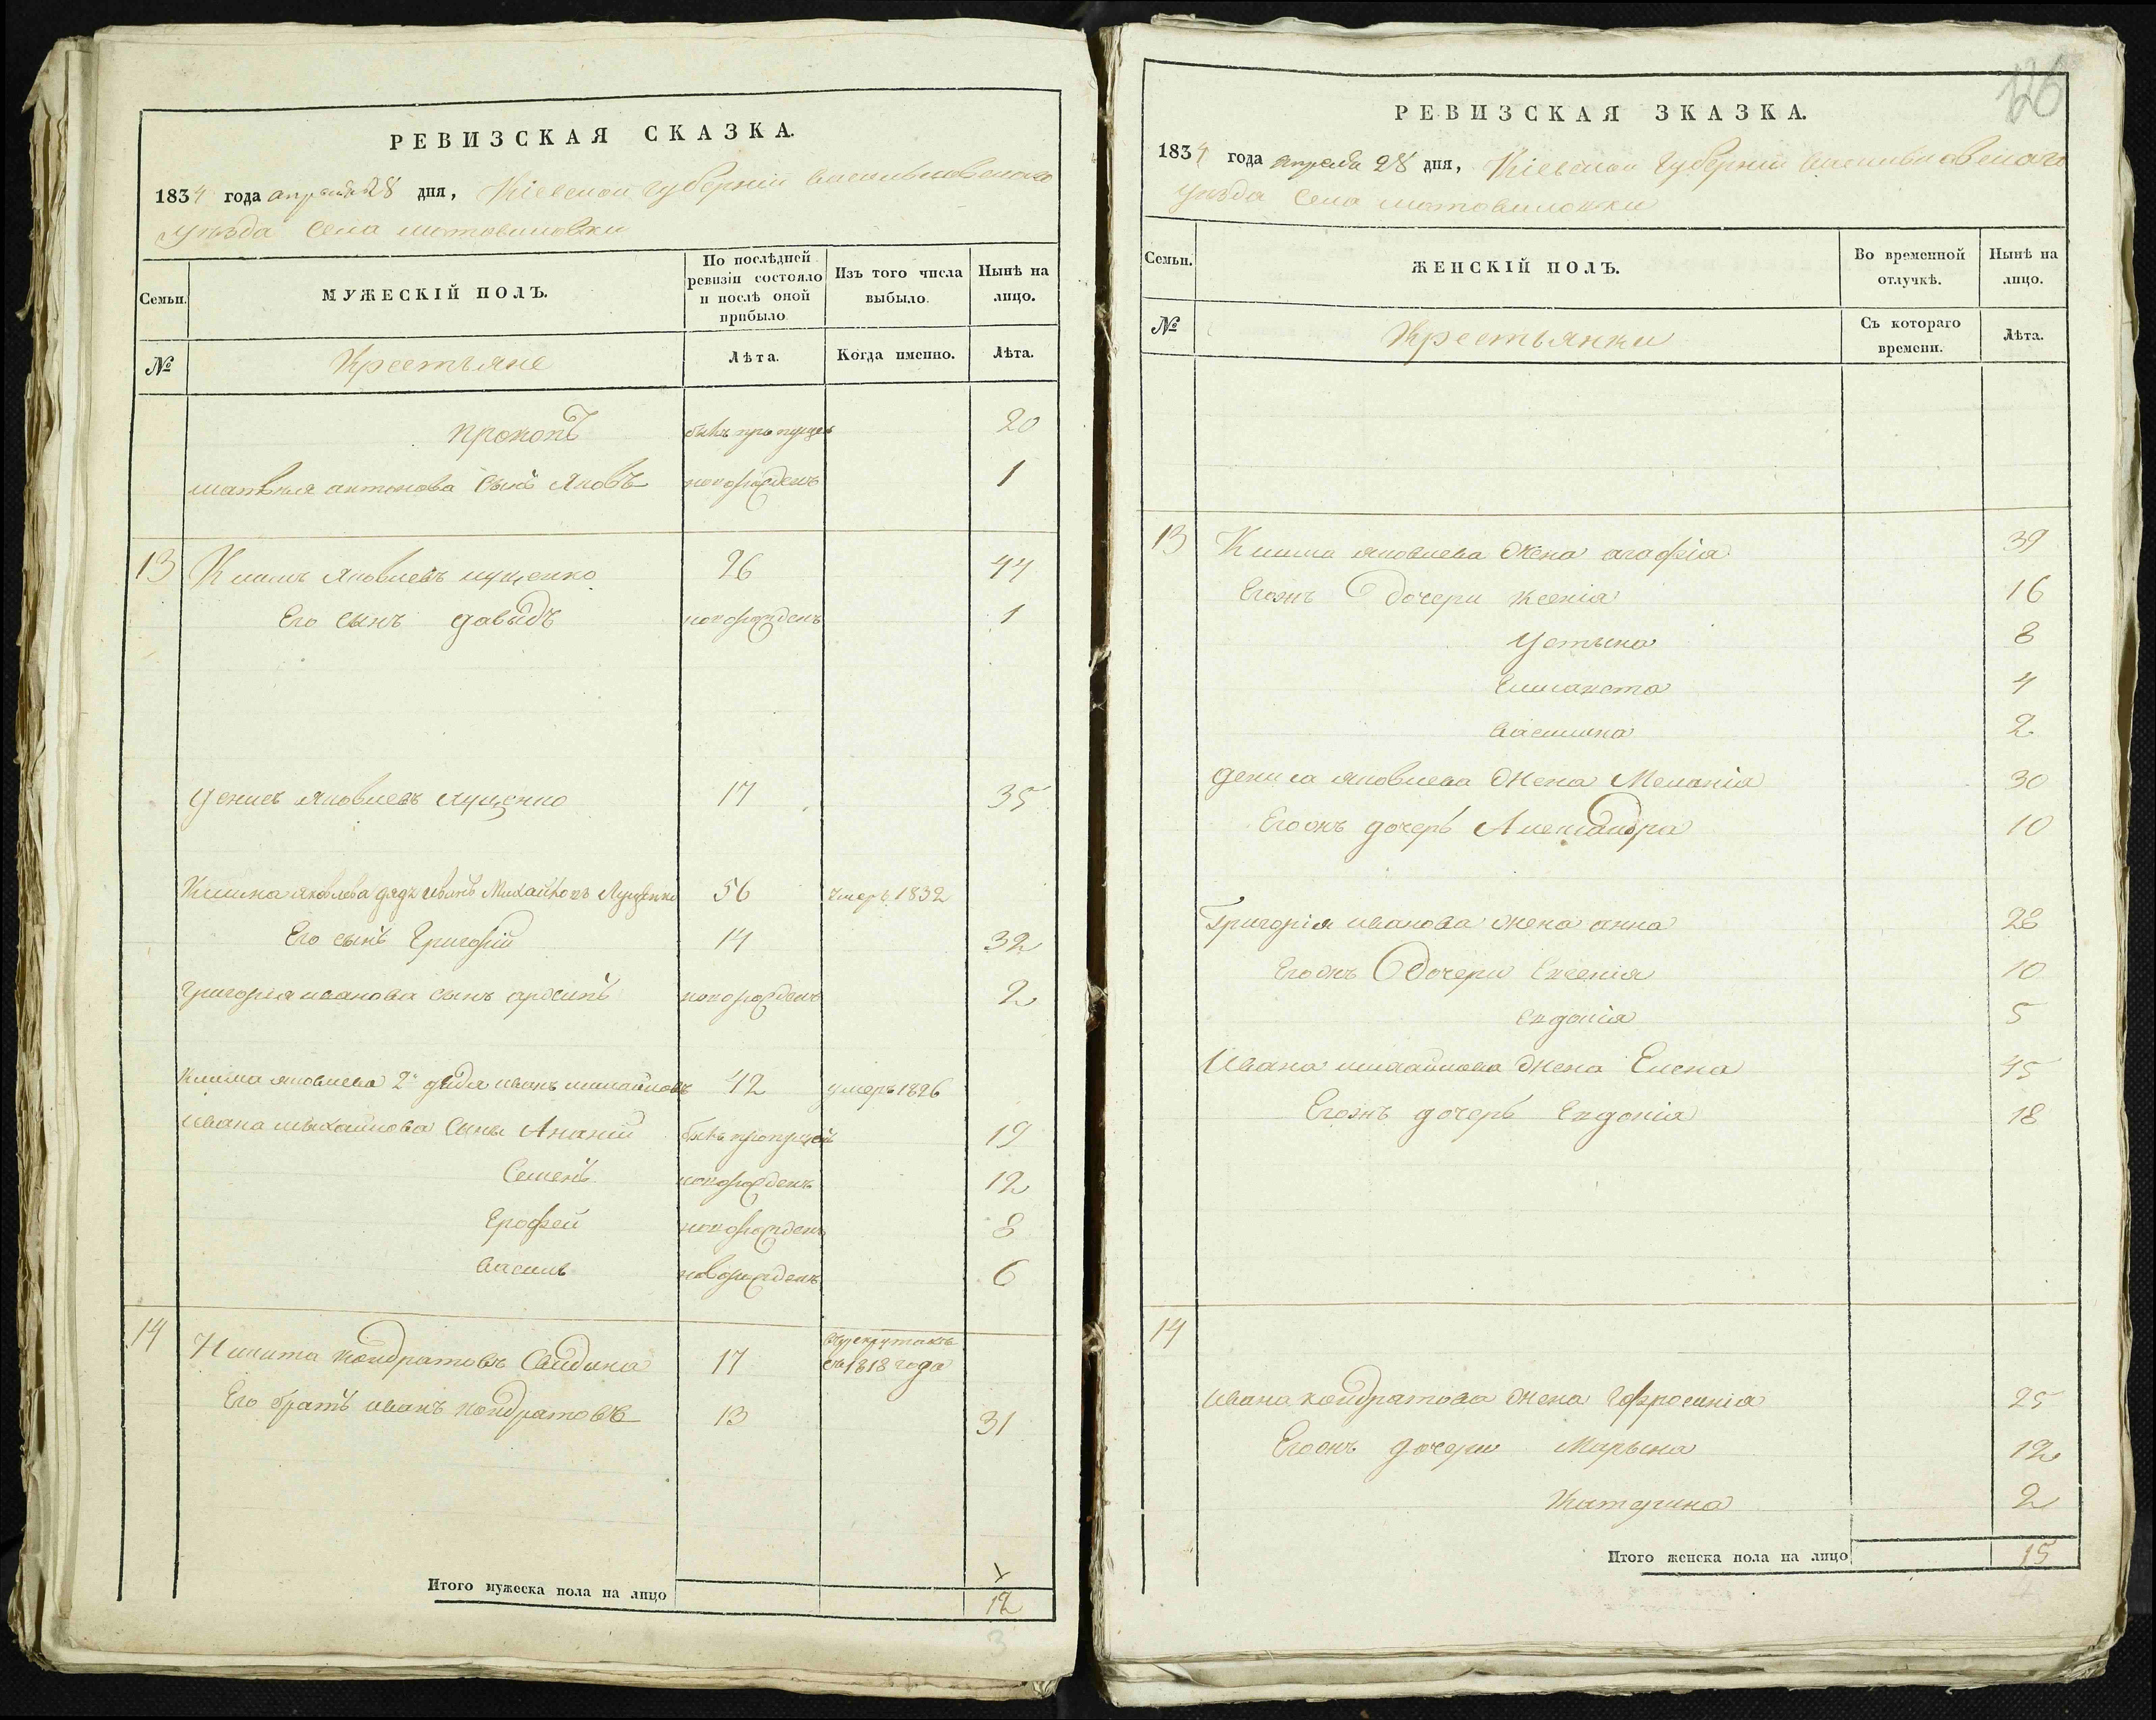 РЕВИЗСКАЯ СКАЗКА.
1834 года апреля 28 дня, Кіевской губерніи Васильковского
уѣзда села мотовиловки
Семьи. МУЖЕСКІЙ ПОЛЪ. По послѣдней ревизіи состояло и послѣ оной прибыло Изъ того числа выбыло. Нынѣ на лицо.
№ Крестьяне Лѣта. Когда именно. Лѣта.
прокопъ бывъ пропущен 20
матвѣя антонова сынъ Яковъ новорожденъ 1
13 Климъ яковлевъ лущенко 26 44
Его сынъ давыдъ новорожденъ 1
денисъ яковлевъ лущенко 17 35
Клима яковлева дядя иванъ Михайловъ Лущенко 56 умеръ 1832
Его сынъ Григорій 14 32
Григорія иванова сынъ новорожденъ 2
Клима яковлева 2й дядя иванъ михайловъ 42 умеръ 1826
ивана михайлова сыны Ананій бывъ пропущенъ 19
Семенъ новорожденъ 12
Ерофей новорожденъ 8
василь новорожденъ 6
14 Никита кондратовъ 17 въ рекрутахъ съ 1818 года
Его братъ иванъ кондратовъ 13 31
Итого мужеска пола на лицо 12
3
126
РЕВИЗСКАЯ ЗКАЗКА.
1834 года апреля 28 дня, Кіевской губерніи Васильковского
уѣзда села мотовиловки
Семьи. ЖЕНСКІЙ ПОЛЪ. Во временной отлучкѣ. Нынѣ на лицо.
№ Крестьянки Съ котораго времени. Лѣта.
13 Клима яковлева жена агафія 39
Егожъ дочери ксенія 16
Устына 8
Елисавета 4
василина 2
дениса яковлева жена Меланія 30
Егожъ дочерь Александра 10
Григорія иванова жена анна 28
Егожъ дочери Ексенія 10
евдокія 5
Ивана михайлова жена Елена 45
Егожъ дочерь Евдокія 18
14
ивана кондратова жена Ефросинія 25
Егожъ дочери Марына 12
Катерина 2
Итого женска пола на лицо 15